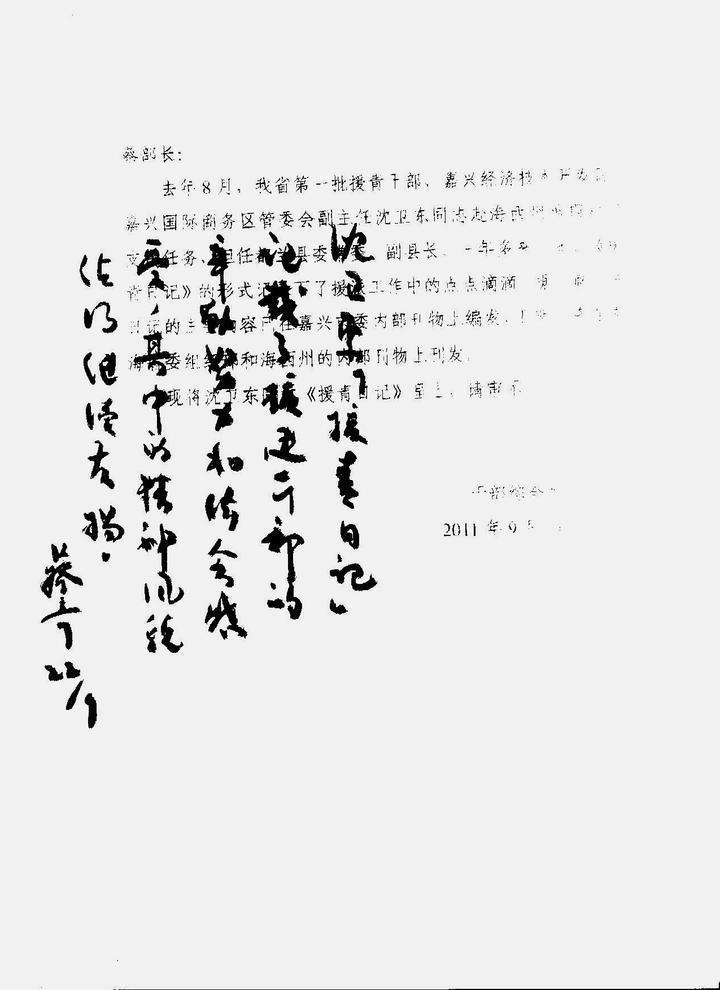 蔡部长:
去年8月,我省第一批援青干部、嘉兴经济技术开发
嘉兴国际商务区管委会副主任沈卫东同志赴海西州
任务,担任都兰县委常委、副县长。一年多
青日记》的形式记下了援青工作中的点点滴滴
日记的主要内容已在嘉兴市委内部刊物上编发,
海省委组织部和海西州的内部刊物上刊发。
现将沈卫东同《援青日记》呈上,请
部综合
2011年9
沈卫东《援青日记》
记载了援建干部的
辛勤努力和体会感
受,其中的精神风貌
值得继续发扬。
蔡奇
22/9